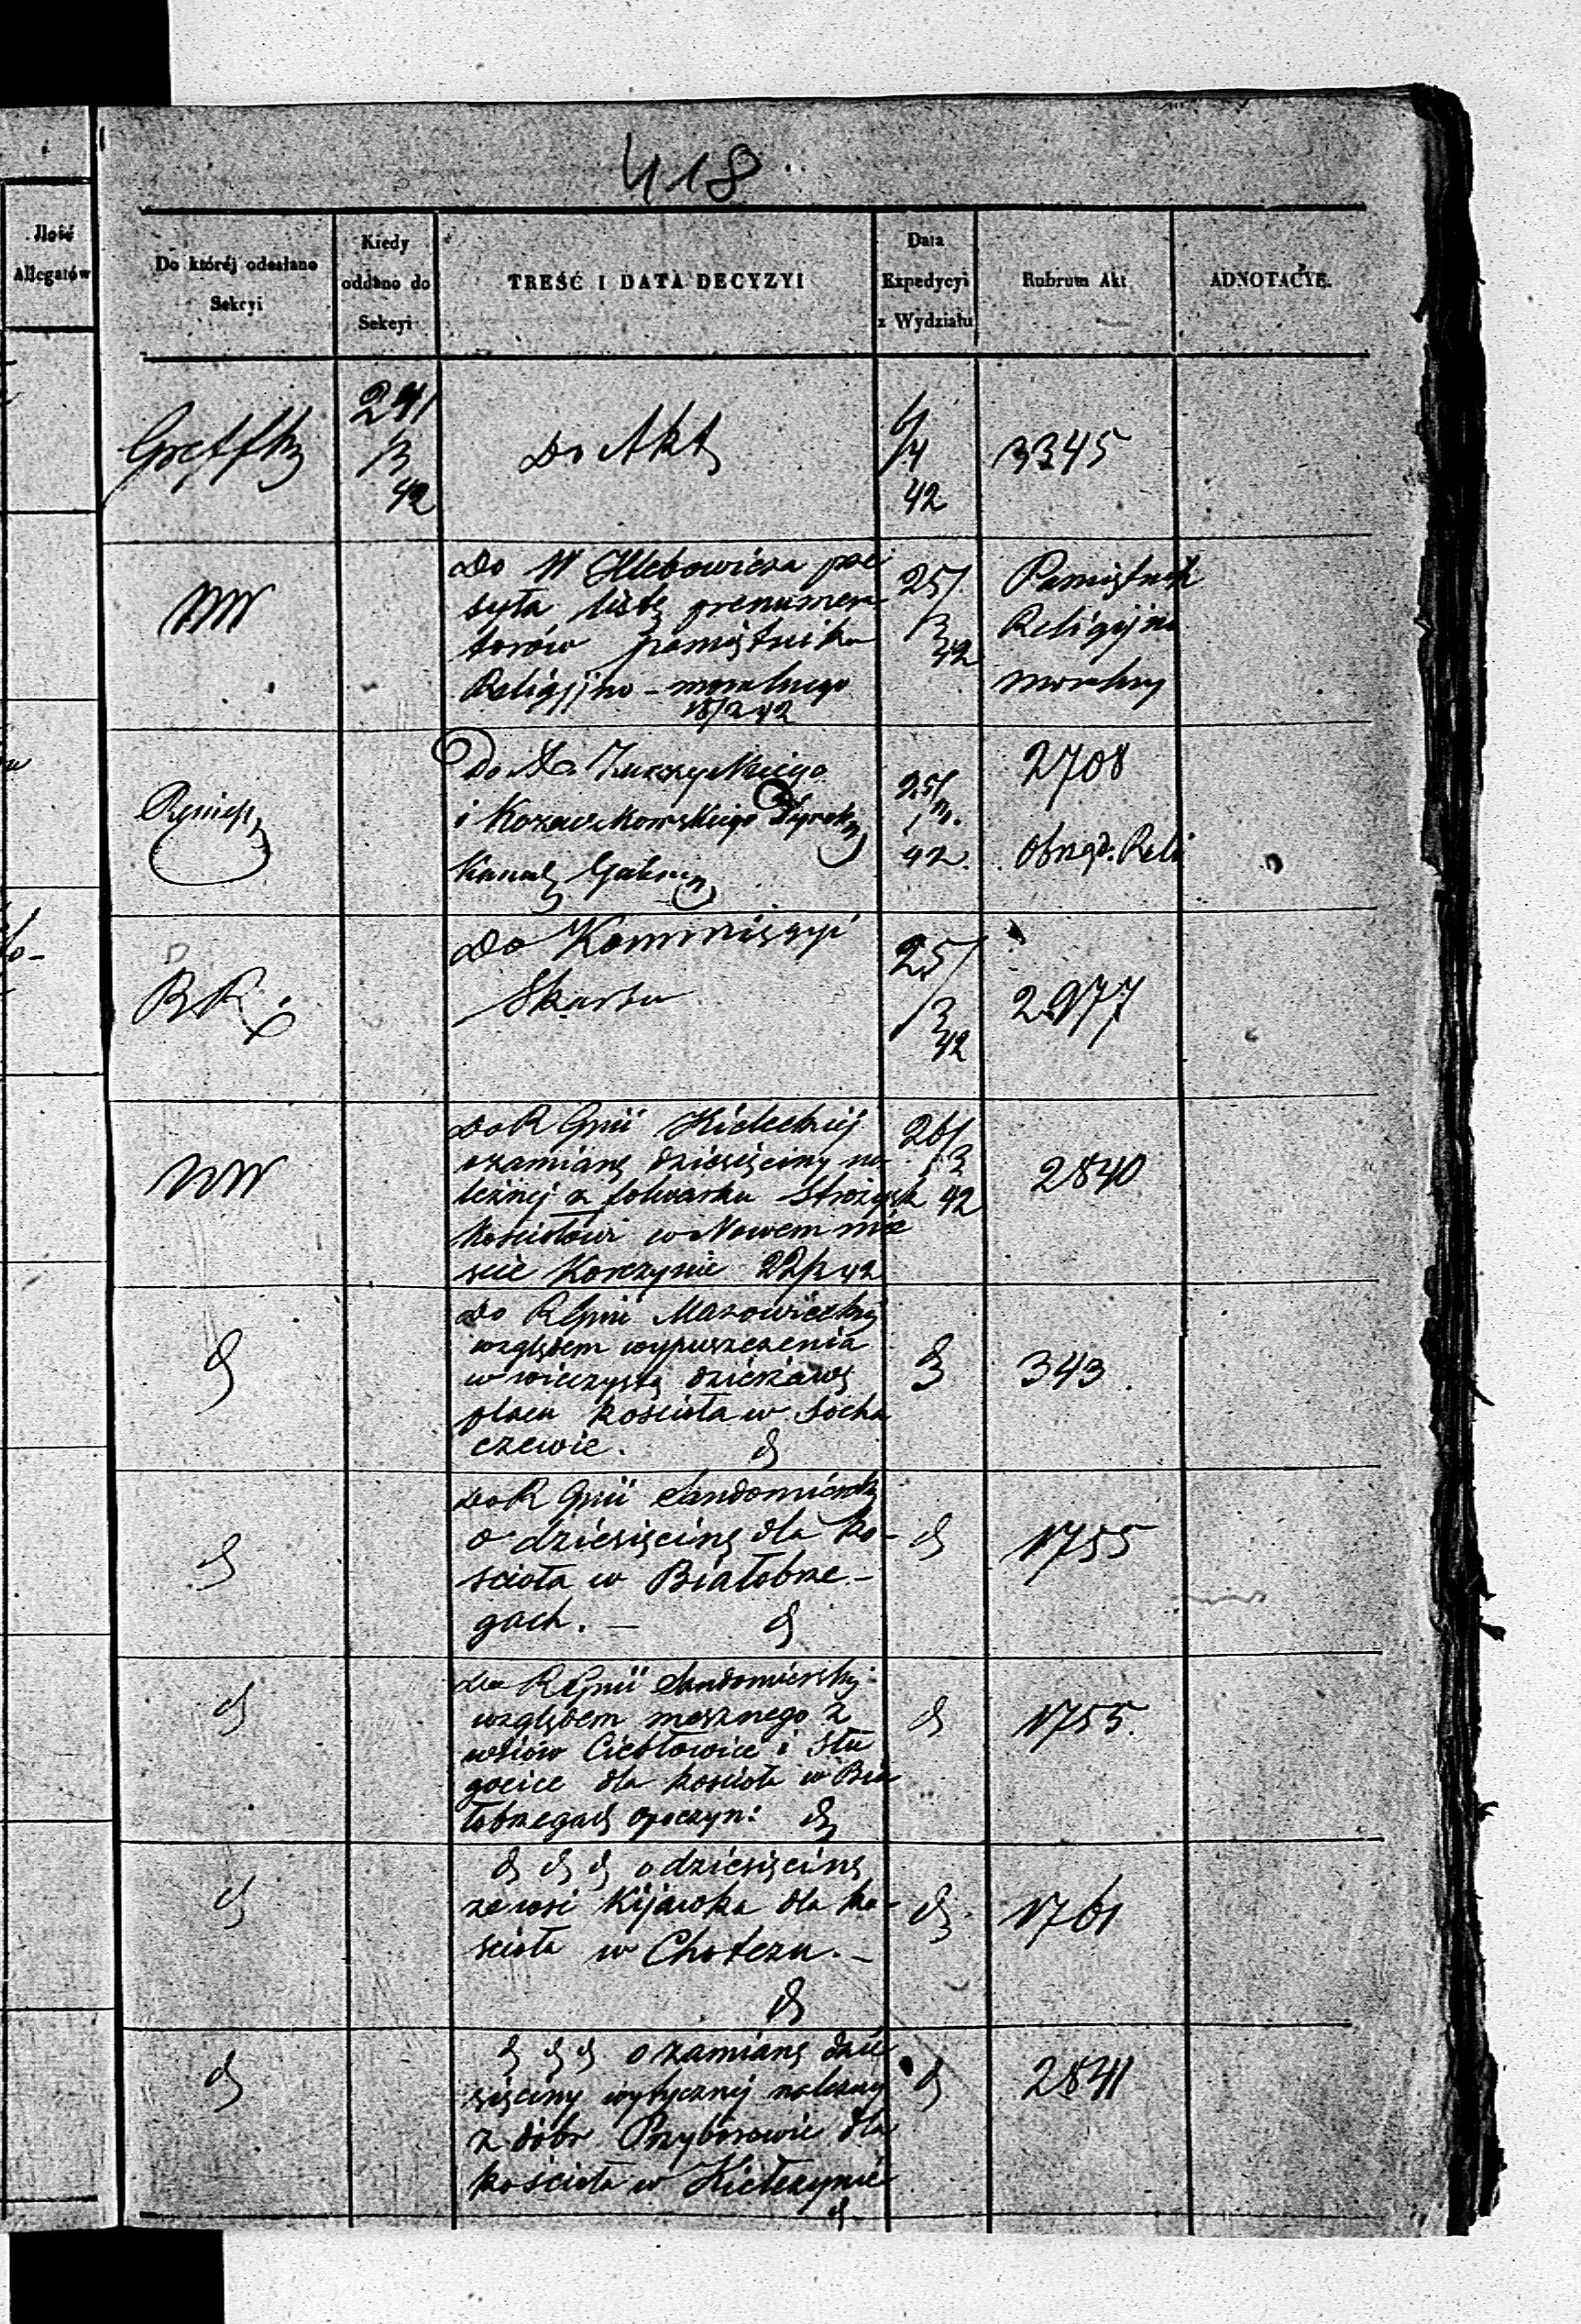 418
Ilość
Allegatów
Do któréj odesłano
Sekcyi
Kiedy
oddano do
Sekcyi
TREŚĆ I DATA DECYZYI
Data
Expedycyi
z Wydziału
Rubrum Akt
ADNOTACYE.
3
42
Do Akt
4
42
3345
Do W Hlebowicza prze
syła listę prenumera
torów pamiętnika
Religijno - moralnego
25/
3
42
Pamiętnik
Religijno
moralny
Do X.
i
25/
3
42
2708
Obrząd. Reli
BR
Do Kommissyi
Skarbu
25/
3
42
2977
Do R Gnii Kieleckiej
o zamianę dziesięciny na
leżnej z folwarku Strożysk
kościołowi w Nowem mie
ście Korczynie 22/3 42
26/
3
42
2840
Do R Gnii Mazowieckiej
względem wypuszczenia
w wieczystą dzierżawę
placu kościoła w Socha
czewie.
343.
Do R Gnii Sandomierskiej
o dziesięcinę dla ko-
ścioła w Białobrze-
gach. -
1755
Do R Gnii Sandomierskiej
względem mesznego z
wsiów Ciebłowice i
dla kościoła w Bia
łobrzegach opoczyn:
1755.
o dziesięcinę
ze wsi Kijanka dla ko-
ścioła w Chotczu. -
1761
o zamianę dzie
sięciny wytycznej należnej
z dóbr Przyborowie dla
kościoła w Kiełczynie
2841